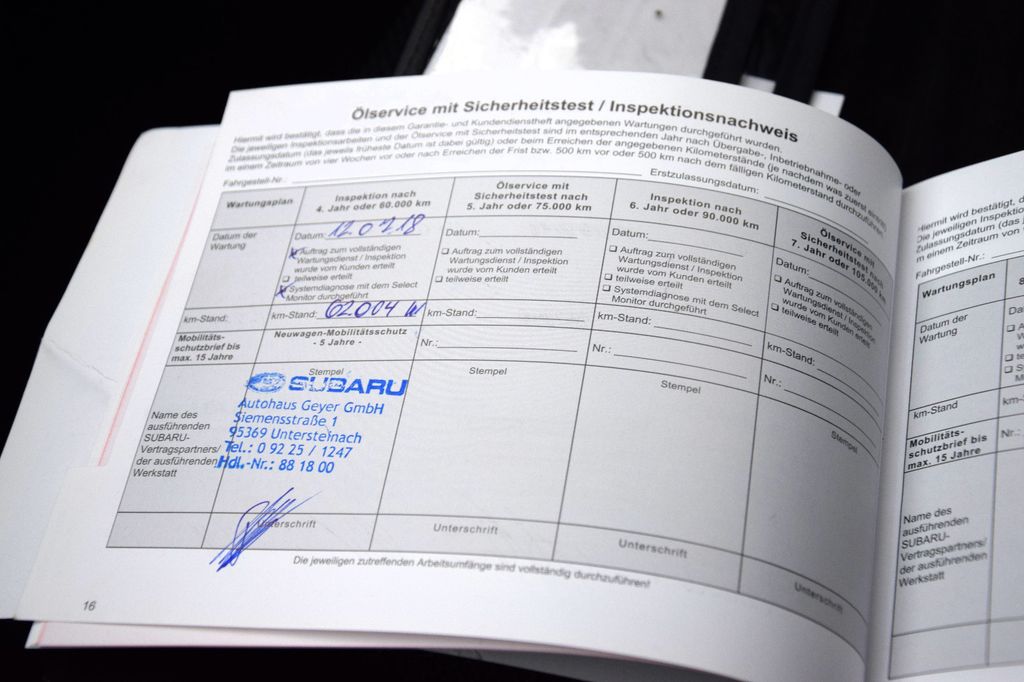 Ölservice mit Sicherheitstest / Inspektionsnachweis
Hiermit wird bestätigt, dass die in diesem Garantie- und Kundendienstheft angegebenen Wartungen durchgeführt wurden.
Die jeweiligen Inspektionsarbeiten und der Ölservice mit Sicherheitstest sind im entsprechenden Jahr nach Übergabe-, Inbetriebnahme- oder
Zulassungsdatum (das jeweils früheste Datum ist dabei gültig) oder beim Erreichen der angegebenen Kilometerstände (je nachdem was zuerst eintritt)
im einem Zeitraum von vier Wochen vor oder nach Erreichen der Frist bzw. 500 km vor oder 500 km nach dem fälligen Kilometerstand durchzuführen.
Fahrgestell-Nr.: Erstzulassungsdatum:
Wartungsplan
Inspektion nach
4. Jahr oder 60.000 km
Ölservice mit
Sicherheitstest nach
5. Jahr oder 75.000 km
Inspektion nach
6. Jahr oder 90.000 km
Ölservice mit
Sicherheitstest nach
7. Jahr oder 105.000 km
Datum der
Wartung
Datum: 12.07.18
Auftrag zum vollständigen
Wartungsdienst / Inspektion
wurde vom Kunden erteilt
teilweise erteilt
Systemdiagnose mit dem Select
Monitor durchgeführt
Datum:
Auftrag zum vollständigen
Wartungsdienst / Inspektion
wurde vom Kunden erteilt
teilweise erteilt
Datum:
Auftrag zum vollständigen
Wartungsdienst / Inspektion
wurde vom Kunden erteilt
teilweise erteilt
Systemdiagnose mit dem Select
Monitor durchgeführt
Datum:
Auftrag zum vollständigen
Wartungsdienst / Inspektion
wurde vom Kunden erteilt
teilweise erteilt
km-Stand:
km-Stand: 62004
km-Stand:
km-Stand:
km-Stand:
Mobilitäts-
schutzbrief bis
max. 15 Jahre
Neuwagen-Mobilitätsschutz
- 5 Jahre -
Nr.:
Nr.:
Nr.:
Name des
ausführenden
SUBARU-
Vertragspartners/
der ausführenden
Werkstatt
Stempel
SUBARU
Autohaus Geyer GmbH
Siemensstraße 1
95369 Untersteinach
Tel.: 0 92 25 / 1247
Hdl.-Nr.: 88 18 00
Stempel
Stempel
Stempel
Unterschrift
Unterschrift
Unterschrift
Unterschrift
Die jeweiligen zutreffenden Arbeitsumfänge sind vollständig durchzuführen!
16
Hiermit wird bestätigt, d
Die jeweiligen Inspektion
Zulassungsdatum (das je
m einem Zeitraum von
Fahrgestell-Nr.:
Wartungsplan
Datum der
Wartung
km-Stand
km-
Mobilitäts-
schutzbrief bis
max. 15 Jahre
Nr.:
Name des
ausführenden
SUBARU-
Vertragspartners/
der ausführenden
Werkstatt